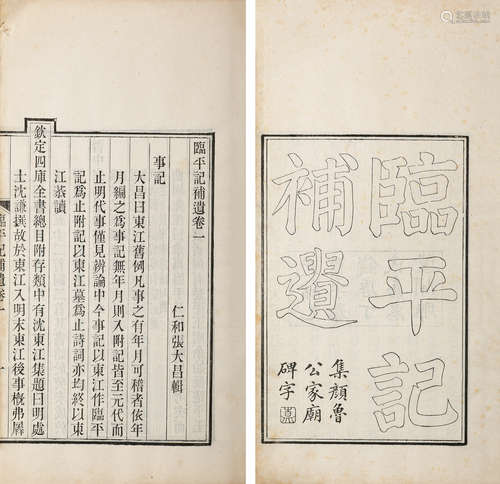 臨平記
補遺
集顏魯
公家廟
碑字
臨平記補遺卷一
仁和張大昌輯
事記
大昌曰東江舊例凡事之有年月可稽者依年
月編之為事記無年月則入附記皆至元代而
止明代事僅見辨論中今事記以東江作臨平
記為止附記以東江墓為止詩詞亦均終以東
江恭讀
欽定四庫全書總目附存類中有沈東江集題曰明處
士沈謙撰故於東江入明末東江後事槪弗羼
臨平記補遺卷一
一